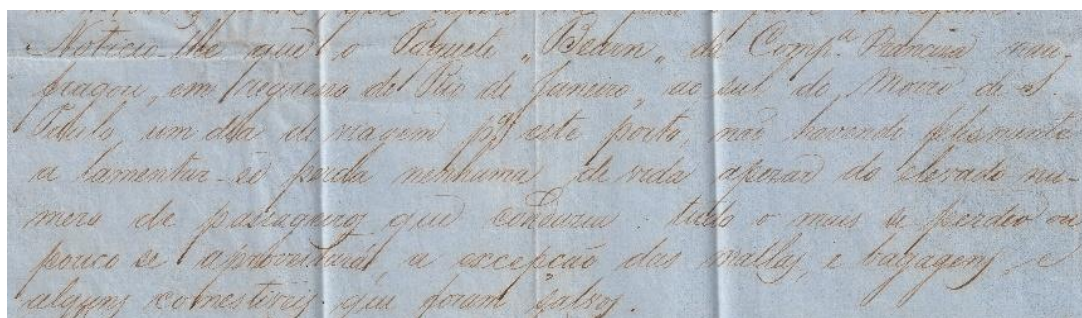 Noticio-lhe que o Paquete "Bearn" da Comp.ª Franceza nau-
fragou, em regresso do Rio de Janeiro, ao sul do Morro de S.
Paulo, um dia de viagem pª este porto, não havendo felismente
a lamentar-se perda nenhuma de vida apezar do elevado nu-
mero de passageiros que conduzia tudo o mais se perdeo ou
pouco se aproveitará a excepção das mallas, e bagagens, e
alguns comestiveis que foram salvos.